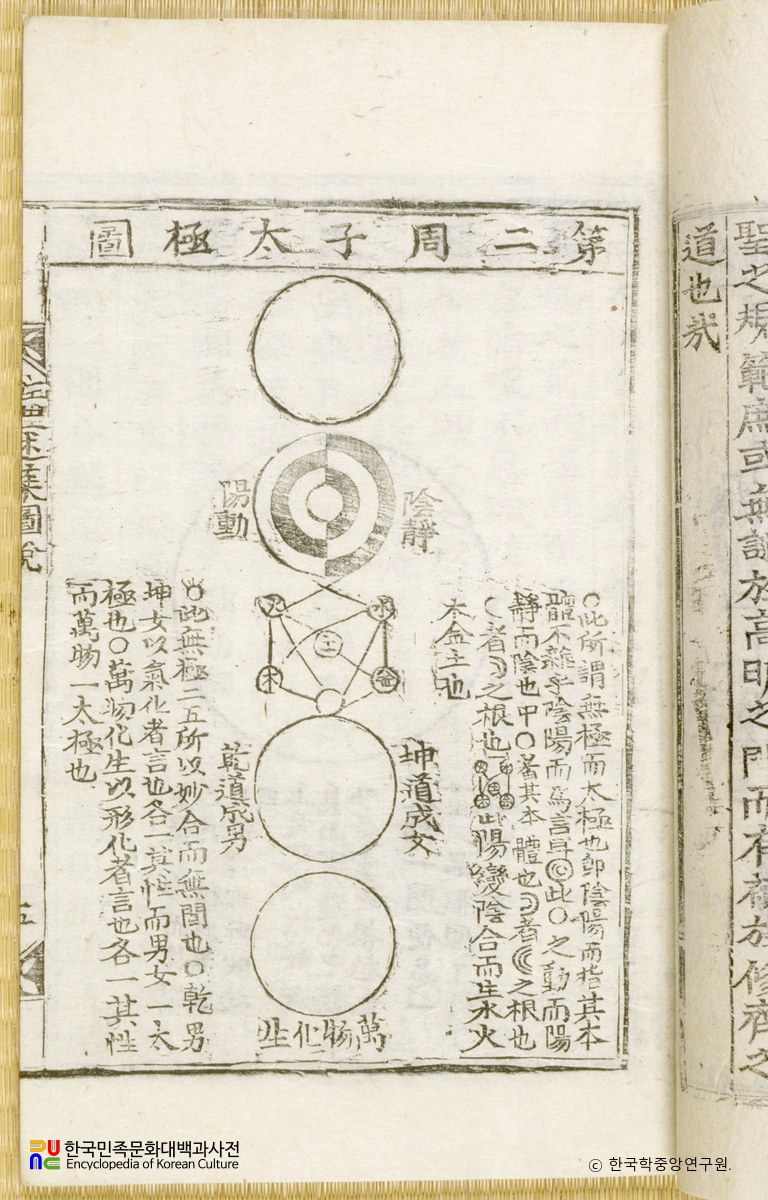 聖之規範庶或無謬於高明之門而有補於修齊之
道也哉
第二周子太極圖
陰靜
陽動
火
水
土
木
金
坤道成女
乾道成男
萬物化生
○此所謂無極而太極也卽陰陽而指其本
體不雜乎陰陽而爲言耳此○之動而陽
靜而陰也中○者其本體也者之根也
者之根也此陽變陰合而生水火
木金土也
○此無極二五所以妙合而無間也○乾男
坤女以氣化者言也各一其性而男女一太
極也○萬物化生以形化者言也各一其性
而萬物一太極也
圖說
五
한국민족문화대백과사전
Encyclopedia of Korean Culture
© 한국학중앙연구원.